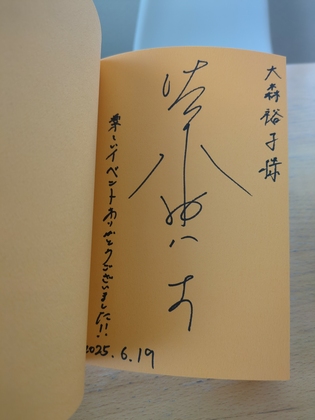 大森裕子様
楽しいイベントありがとうございました!!
2025.6.19